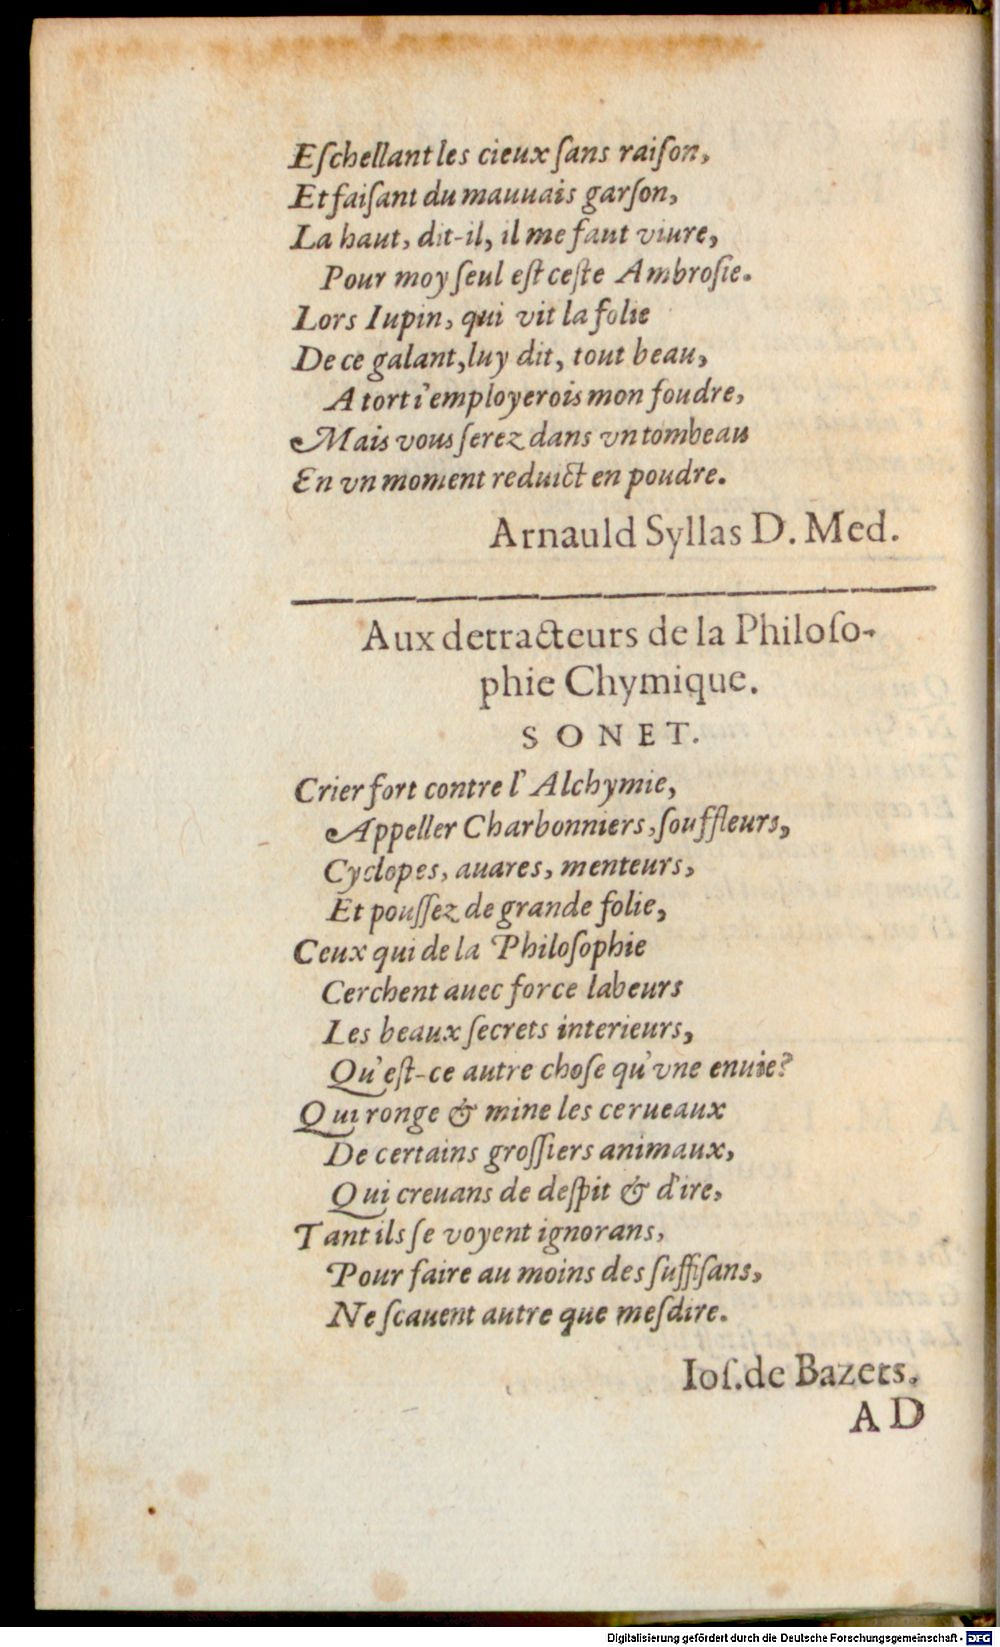 Eſchellant les cieux ſans raiſon,
Et faiſant du mauuais garſon,
La haut, dit-il, il me faut viure,
Pour moy ſeul eſt ceſte Ambroſie.
Lors Iupin, qui vit la folie
De ce galant, luy dit, tout beau,
A tort i'employerois mon foudre,
Mais vous ſerez dans vn tombeau
En vn moment reduict en poudre.
Arnauld Syllas D. Med.
Aux detracteurs de la Philoſo-
phie Chymique.
SONET.
Crier fort contre l'Alchymie,
Appeller Charbonniers, ſouffleurs,
Cyclopes, auares, menteurs,
Et pouſſez de grande folie,
Ceux qui de la Philoſophie
Cerchent auec force labeurs
Les beaux ſecrets interieurs,
Qu'eſt-ce autre choſe qu'vne enuie?
Qui ronge & mine les cerueaux
De certains groſſiers animaux,
Qui creuans de deſpit & d'ire,
Tant ils ſe voyent ignorans,
Pour faire au moins des ſuffiſans,
Ne ſcauent autre que meſdire.
Ioſ. de Bazets.
AD
Digitalisierung gefördert durch die Deutsche Forschungsgemeinschaft - DFG